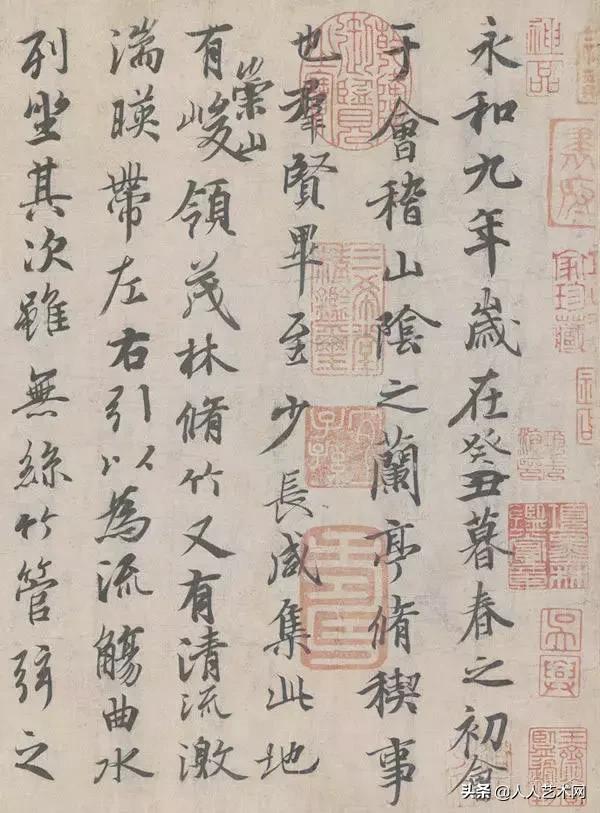 永和九年歲在癸丑暮春之初會
于會稽山陰之蘭亭脩稧事
也羣賢畢至少長咸集此地
有崇山峻領茂林脩竹又有清流激
湍暎帶左右引以為流觴曲水
列坐其次雖無絲竹管弦之
神品
三希堂精鑑璽
頭条 @人人艺术网